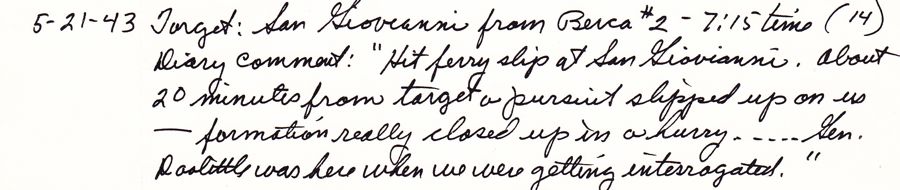 5-21-43 Target: San Giovianni from Berca #2 - 7:15 time (14)
Diary comment: "Hit ferry slip at San Giovianni. About
20 minutes from target a pursuit slipped up on us
— formation really closed up in a hurry. ..... Gen.
Doolittle was here when we were getting interrogated."